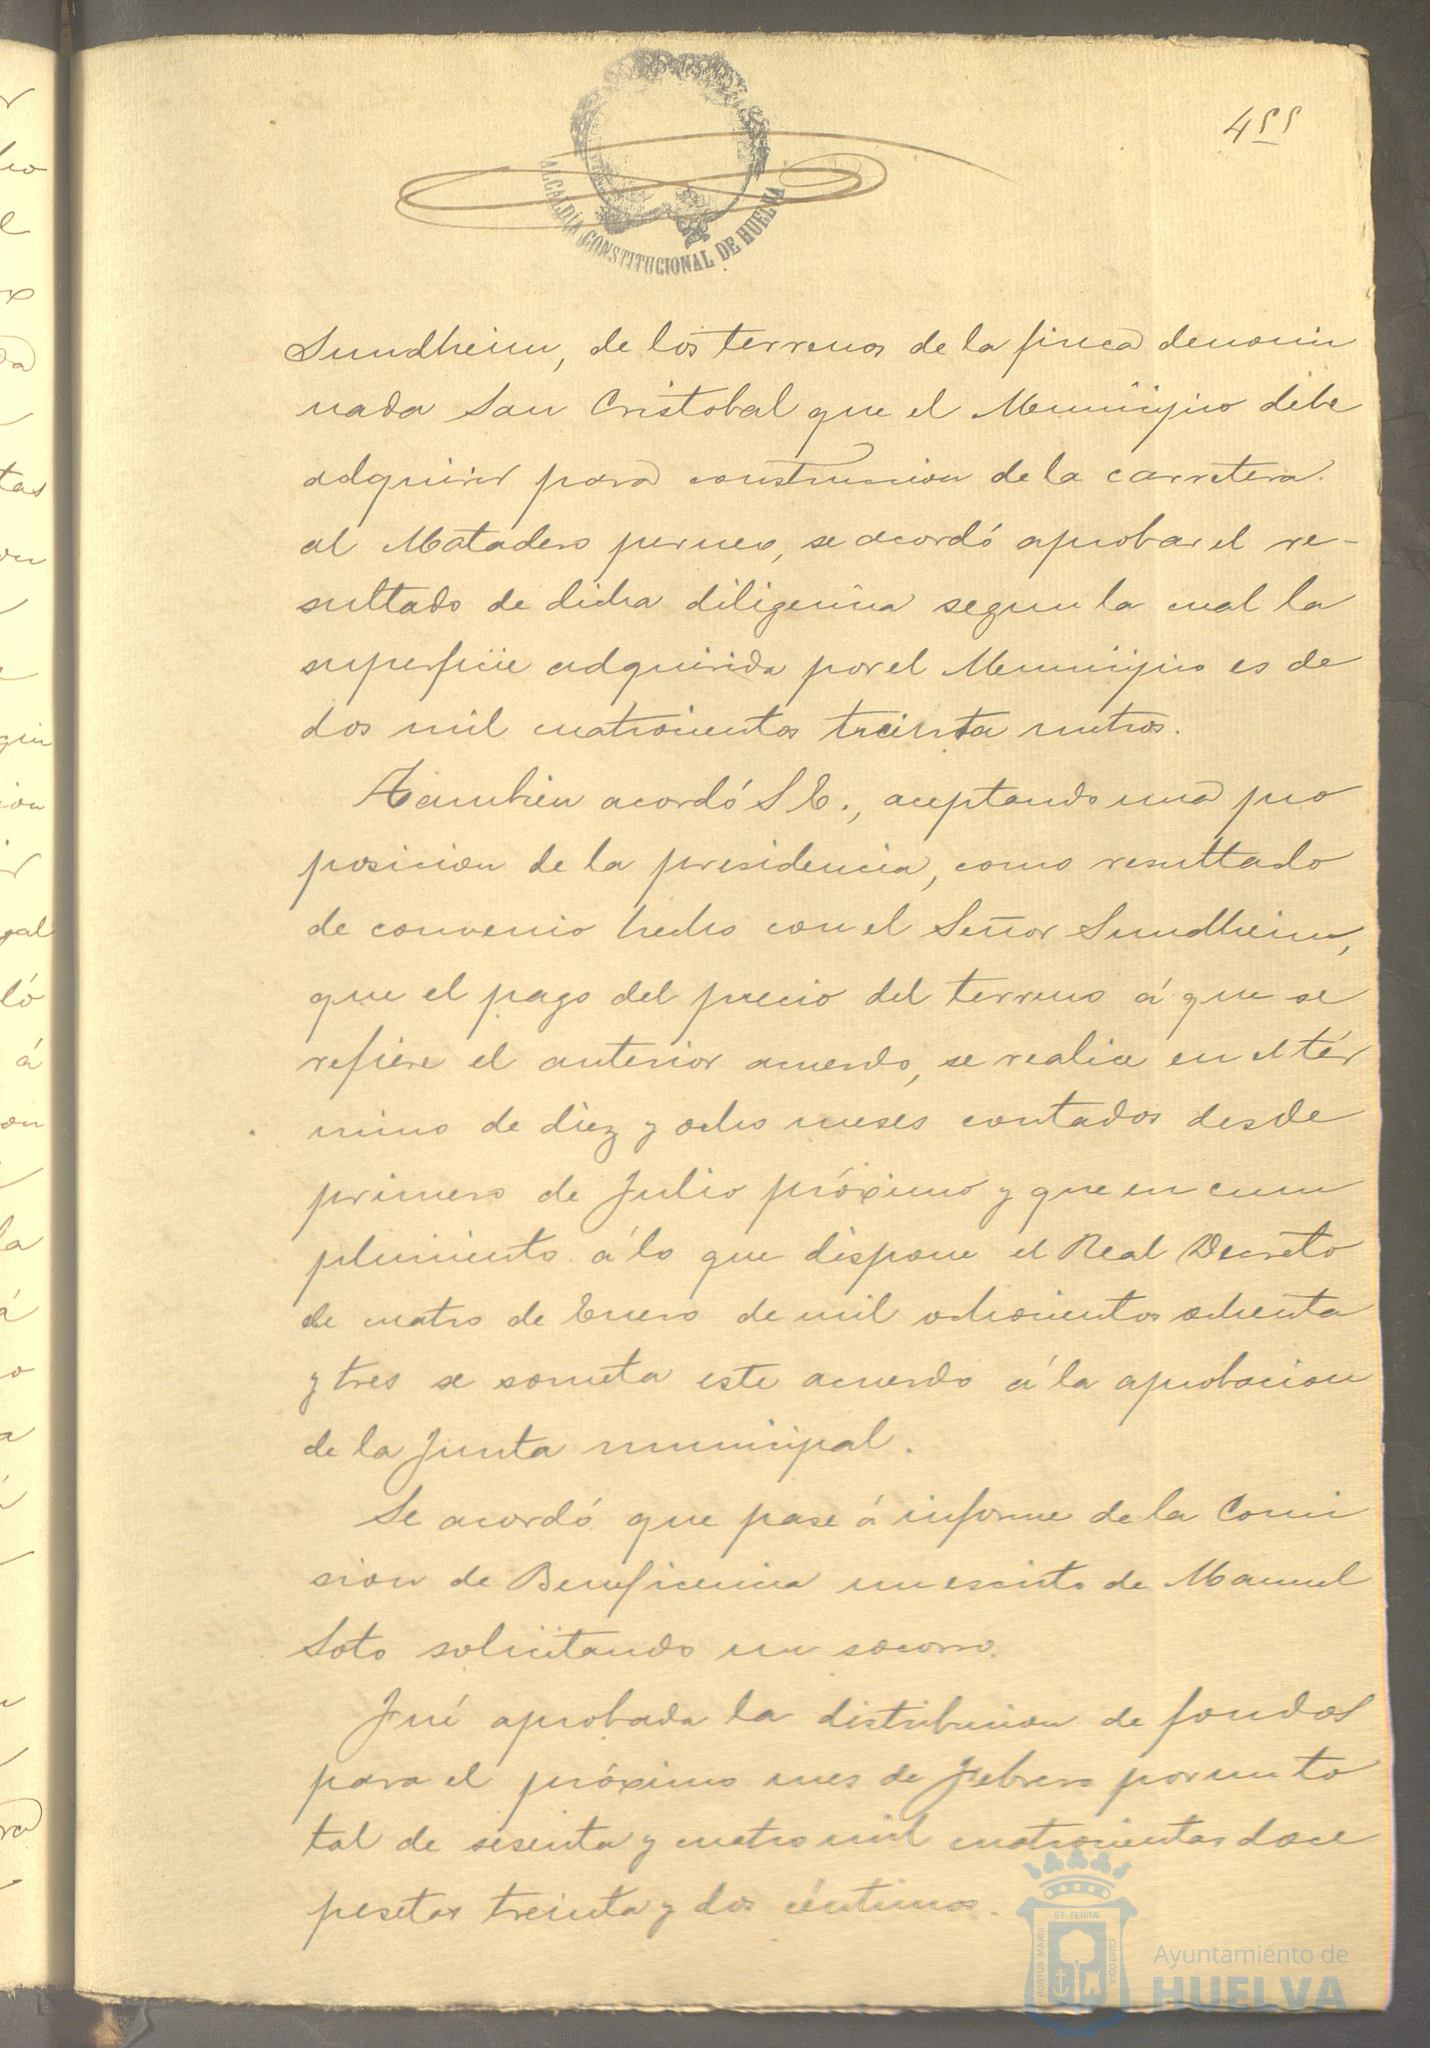 455
ALCALDÍA CONSTITUCIONAL DE HUELVA
Sundheim, de los terrenos de la finca denomi
nada San Cristobal que el Municipio debe
adquirir para construccion de la carretera
al Matadero pernco, se acordó aprobar el re-
sultado de dicha diligencia segun la cual la
superficie adquirida por el Municipio es de
dos mil cuatrocientos treinta metros.
Tambien acordó S E., aceptando una pro
posicion de la presidencia, como resultado
de convenio hecho con el Señor Sundheim,
que el pago del precio del terreno á que se
refiere el anterior acuerdo, se realice en el tér
mino de diez y ocho meses contados desde
primero de Julio próximo y que en cum
plimiento á lo que dispone el Real Decreto
de cuatro de Enero de mil ochocientos ochenta
y tres se someta este acuerdo á la aprobacion
de la Junta municipal.
Se acordó que pase á informe de la Comi
sion de Beneficencia un escrito de Manuel
Soto solicitando un socorro.
Fué aprobada la distribucion de fondos
para el próximo mes de Febrero por un to
tal de sesenta y cuatro mil cuatrocientas doce
pesetas treinta y dos céntimos.
PORTUS MARIS ET TERRÆ CUSTODIA
Ayuntamiento de
HUELVA